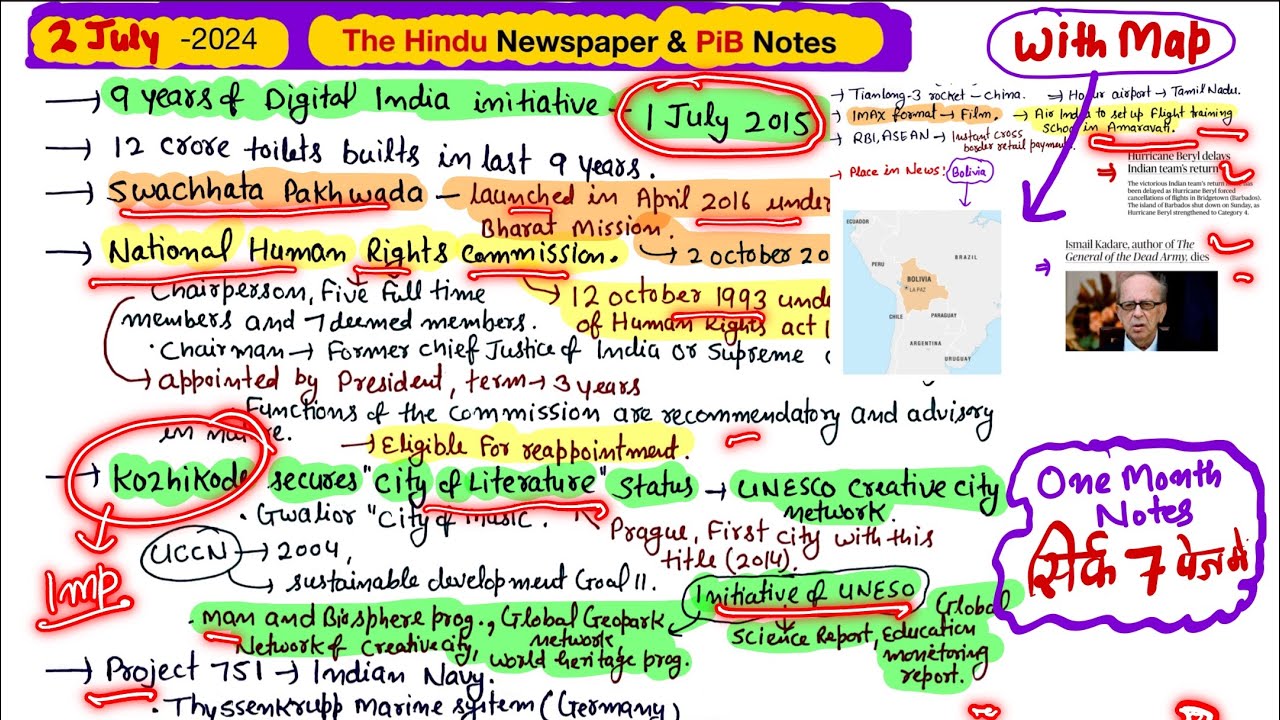 2 July -2024
The Hindu Newspaper & PiB Notes
With Map
→ 9 years of Digital India initiative - 1 July 2015
→ 12 crore toilets builts in last 9 years.
→ Swachhata Pakhwada - launched in April 2016 under
Bharat Mission.
→ 2 october 20
→ National Human Rights Commission.
→ 12 october 1993 unde
of Human Rights act 1
Chairperson, Five full time
members and 7 deemed members.
• Chairman → Former chief Justice of India or Supreme
→ appointed by President, term → 3 years
Functions of the commission are recommendatory and advisory
in nature.
→ Eligible for reappointment.
→ Kozhikode secures "City of Literature" Status → UNESCO Creative City
network.
Imp
• Gwalior "City of Music".
Prague, First city with this
title (2014).
UCCN → 2004,
→ sustainable development Goal 11.
Initiative of UNESO
• man and Biosphere prog., Global Geopark
network,
Network of Creative city, world heritage prog.
Science Report, Education
monitoring
report.
Global
→ Project 751 → Indian Navy.
• Thyssenkrupp Marine system (Germany)
→ Tianlong-3 rocket - China.
⇒ Hosur airport → Tamil Nadu.
→ IMAX format → Film.
→ Air India to set up Flight training
school in Amaravati.
→ RBI, ASEAN → Instant cross
border retail payment.
→ Place in News: Bolivia
ECUADOR
PERU
BRAZIL
BOLIVIA
LA PAZ
CHILE
PARAGUAY
ARGENTINA
URUGUAY
Hurricane Beryl delays
Indian team's return
The victorious Indian team's return has
been delayed as Hurricane Beryl forced
cancellations of flights in Bridgetown (Barbados).
The island of Barbados shut down on Sunday, as
Hurricane Beryl strengthened to Category 4.
Ismail Kadare, author of The
General of the Dead Army, dies
One Month
Notes
सिर्फ 7 पेज में